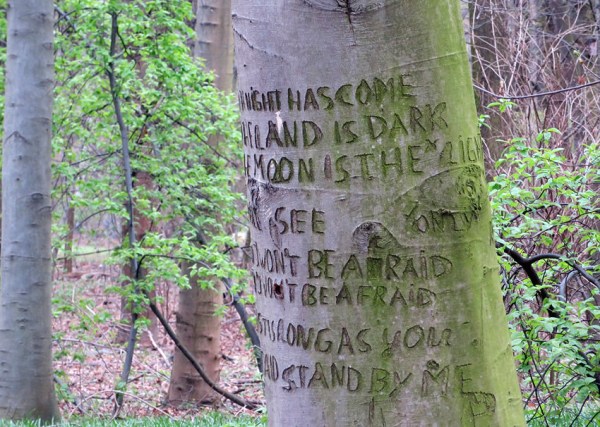 NIGHT HAS COME
LAND IS DARK
MOON IS THE LIGH
SEE
WON'T BE AFRAID
BE AFRAID
AS LONG AS YOU
STAND BY ME